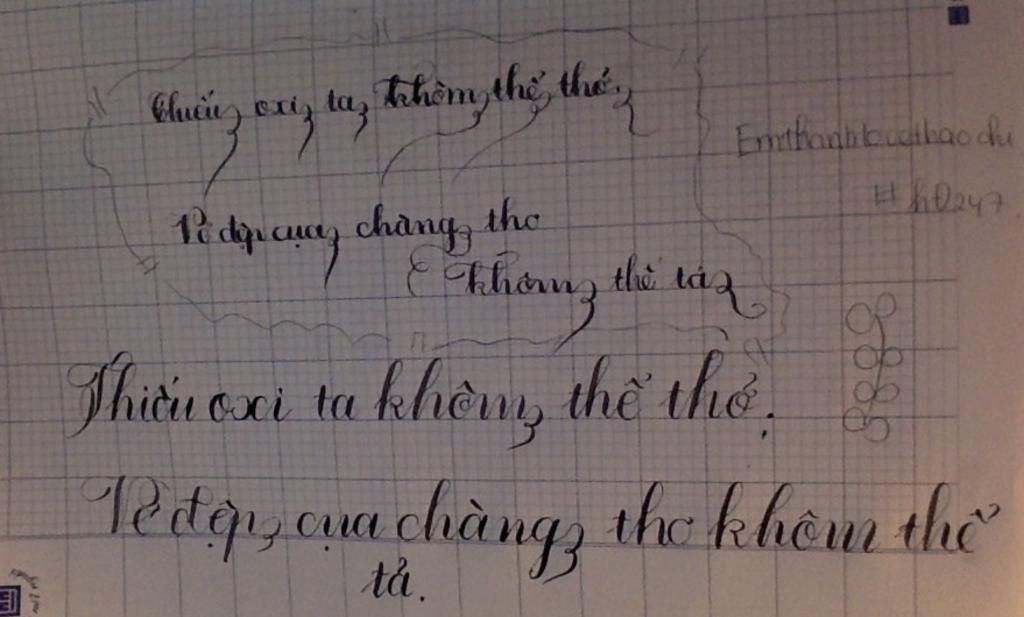 Thiếu oxi ta không thể thở,
Vẻ đẹp của chàng thơ
không thể tả
Emthanhtouchbaochi
#hĐ247
Thiếu oxi ta không thể thở.
Vẻ đẹp của chàng thơ không thể
tả.